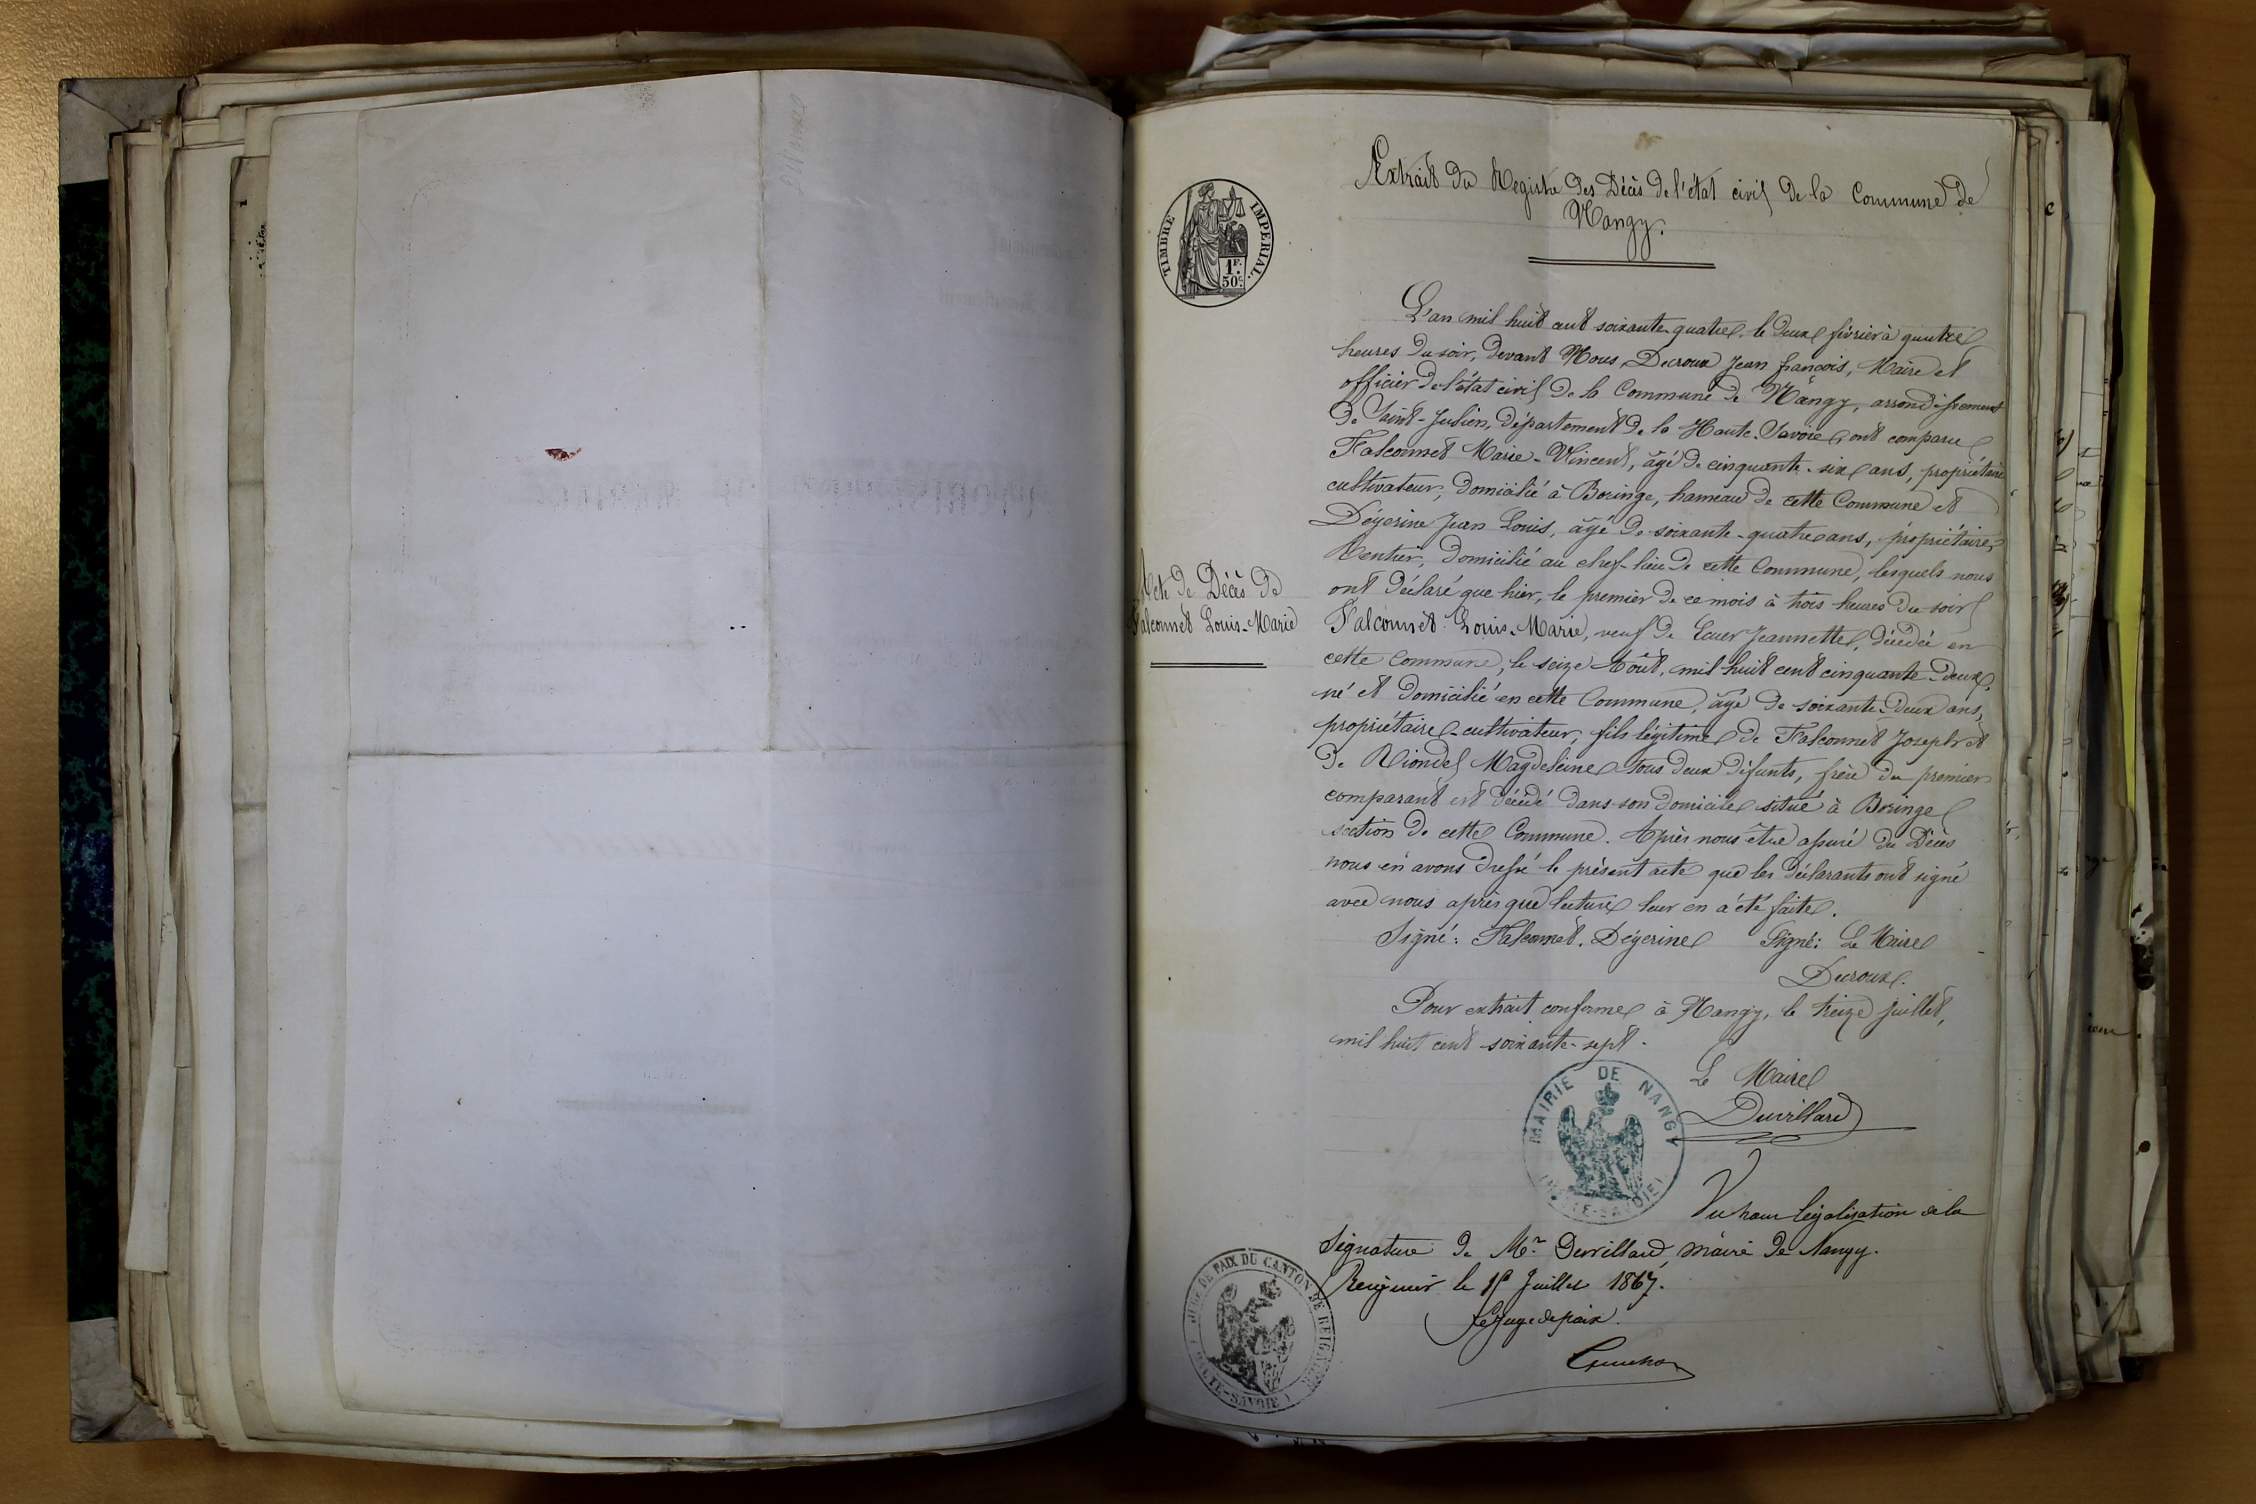 Extrait du Registre des Décès de l'état civil de la Commune de
Nangy.
TIMBRE IMPERIAL.
1F.
50c.
L'an mil huit cent soixante-quatre, le deux février à quatre
heures du soir, devant Nous Decroux Jean françois, Maire et
officier de l'état civil de la Commune de Nangy, arrondissement
de Saint-Julien, département de la Haute-Savoie, ont comparu
Falconnet Marie-Vincent, âgé de cinquante-six ans, propriétaire
cultivateur, domicilié à Boringe, hameau de cette Commune et
Déjerine Jean Louis, âgé de soixante-quatre ans, propriétaire
Rentier, domicilié au chef-lieu de cette Commune, lesquels nous
ont déclaré que hier, le premier de ce mois à trois heures du soir
Acte de Décès de
Falconnet Louis-Marie
Falconnet Louis-Marie, veuf de Jeannette, décédée en
cette Commune, le seize Août, mil huit cent cinquante-deux,
né et domicilié en cette Commune, âgé de soixante-deux ans,
propriétaire-cultivateur, fils légitime de Falconnet Joseph et
de Riondel Magdeleine tous deux défunts, frère du premier
comparant est décédé dans son domicile situé à Boringe
section de cette Commune. Après nous être assuré du Décès
nous en avons dressé le présent acte que les déclarants ont signé
avec nous après que lecture leur en a été faite.
Signé: Falconnet. Déjerine Signé: Le Maire
Decroux.
Pour extrait conforme à Nangy, le treize juillet,
mil huit cent soixante-sept.
Le Maire
Duvillard
MAIRIE DE NANGY
(HTE-SAVOIE)
Vu pour légalisation de la
Signature de Mr. Duvillard, maire de Nangy.
Reignier le Juillet 1867.
Le Juge de paix.
DE PAIX DU CANTON DE REIGNIER
(HAUTE-SAVOIE)